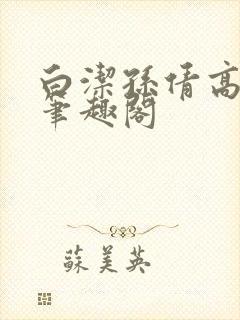 白潔孫倩高
筆趣閣
蘇美英